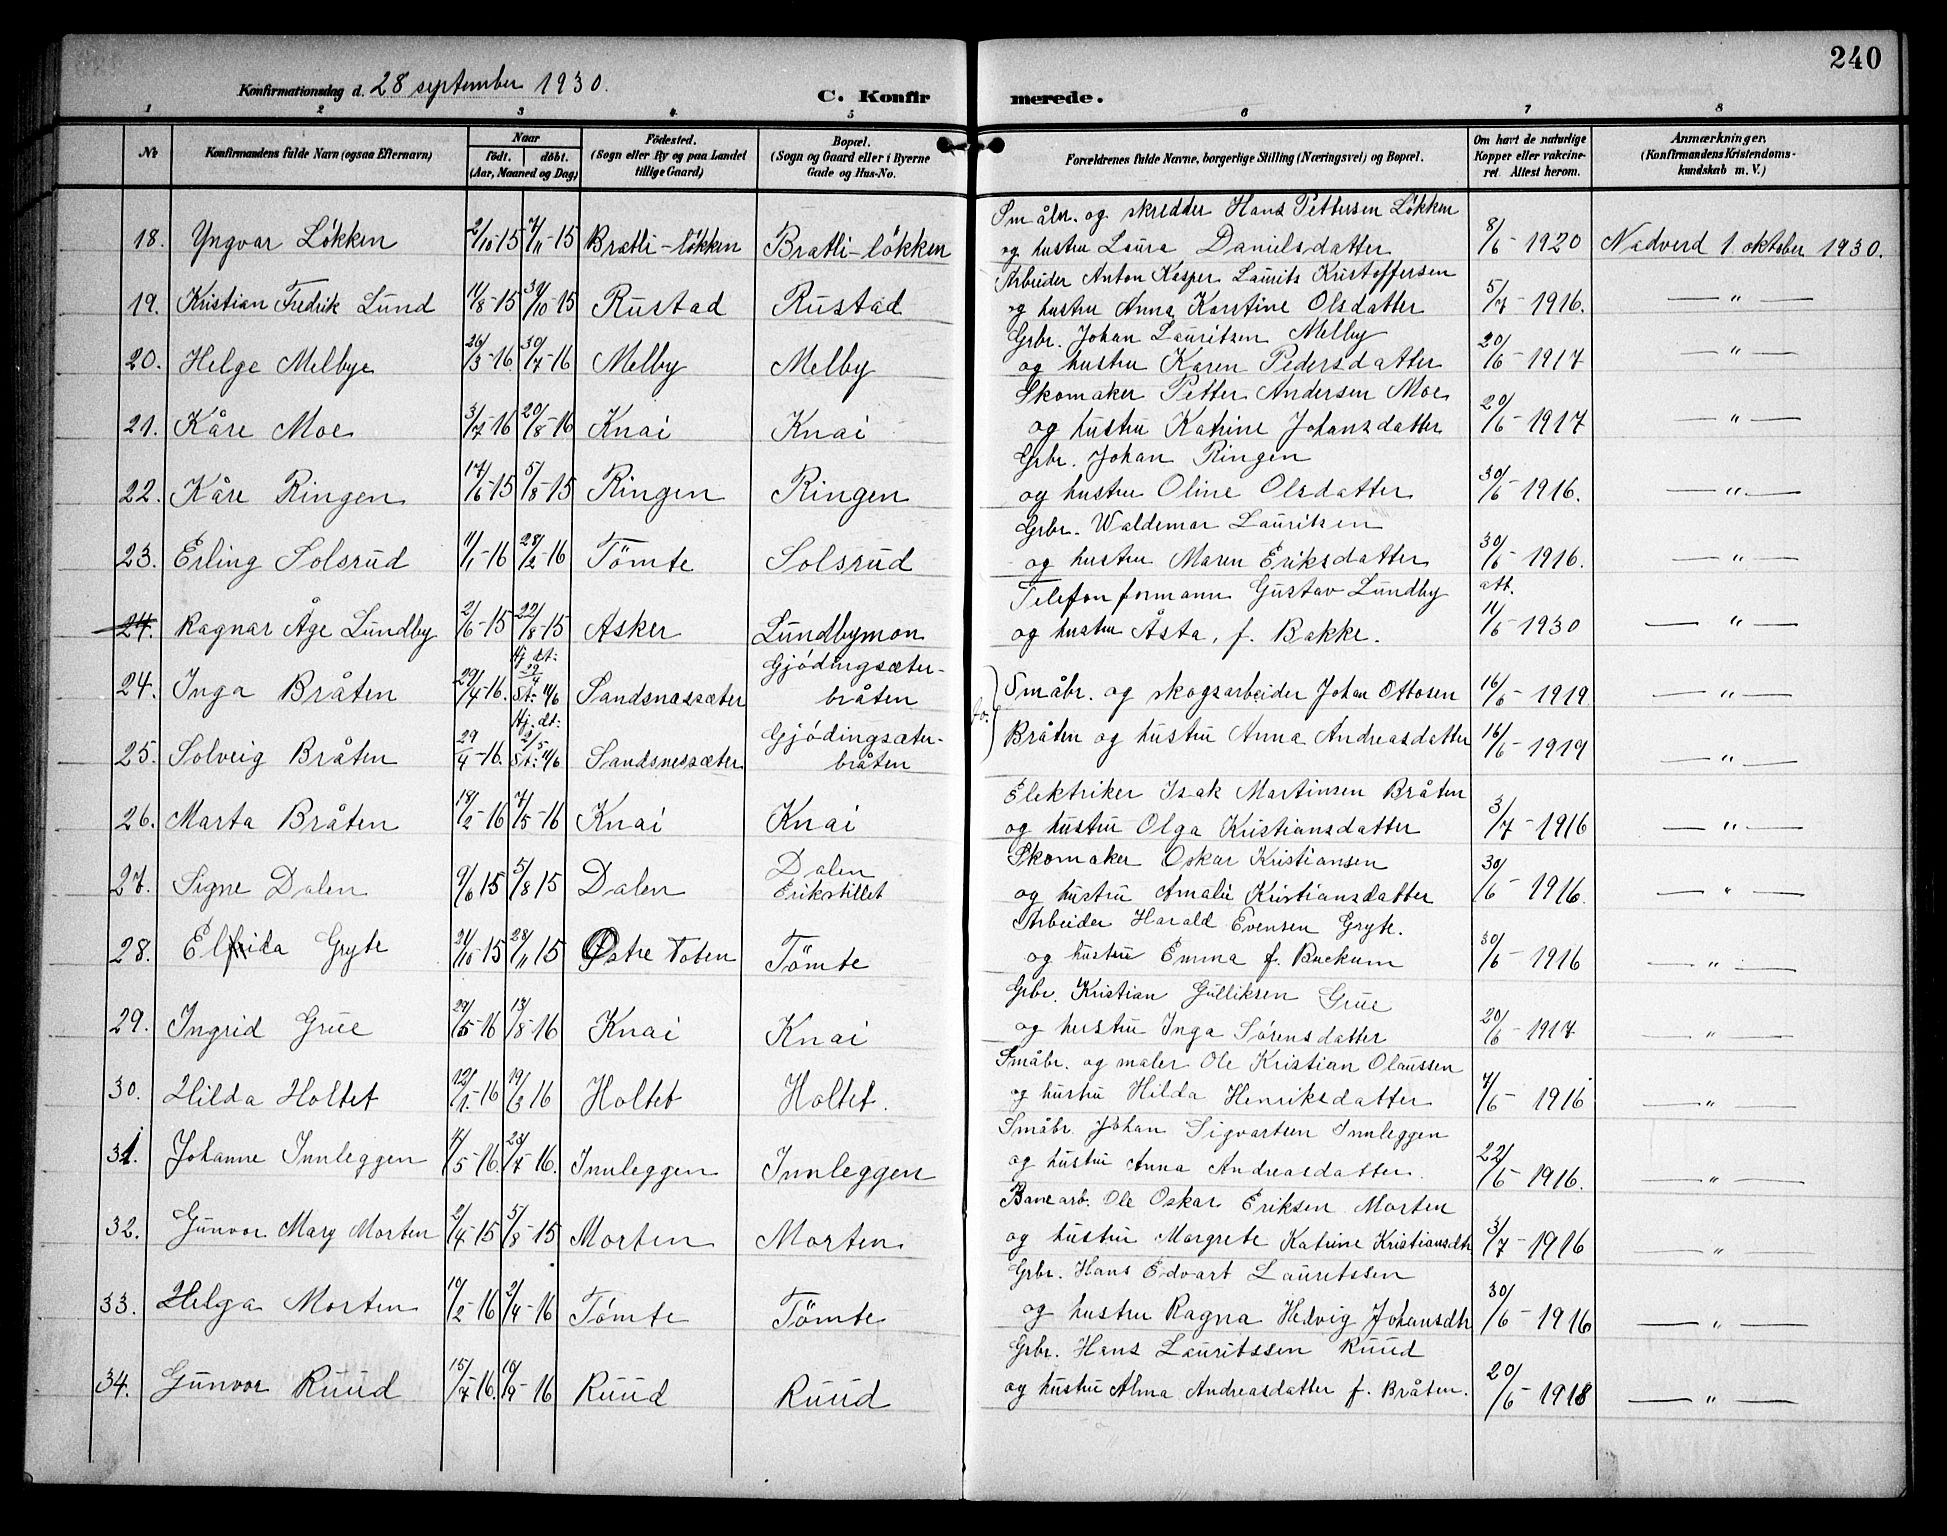 240
Konfirmationsdag d. 28 september 1930.
C. Konfirmerede.
1 2 3 4 5 6 7 8
№ Konfirmandens fulde Navn (ogsaa Efternavn) Naar født. døbt. (Aar, Maaned og Dag) Födested. (Sogn eller By og paa Landet tillige Gaard) Bopæl. (Sogn og Gaard eller i Byerne Gade og Hus-No. Forældrenes fulde Navne, borgerlige Stilling (Næringsvei) og Bopæl. Om havt de naturlige Kopper eller vakcineret. Attest herom. Anmærkninger, (Konfirmandens Kristendomskundskab m. V.)
Småbr. og skredder Hans Pettersen Løkken
18. Yngvar Løkken 2/10-15 7/11-15 Brætli-løkken Bratli-løkken og hustru Laura Danielsdatter 8/6-1920 Nadverd 1. oktober 1930.
Arbeider Anton Kasper Laurits Kristoffersen
19. Kristian Fredrik Lund 11/8-15 30/10-15 Rustad Rustad og hustru Anna Karstine Olsdatter 5/7-1916. — " —
Grbr. Johan Lauritsen Melby
20. Helge Melbye 26/3-16 30/7-16 Melby Melby og hustru Karen Pedersdatter 20/6-1917 — " —
Skomaker Petter Andersen Moe
21. Kåre Moe 3/7-16 20/8-16 Knai Knai og hustru Katrine Johansdatter 20/6-1917 — " —
Grbr. Johan Ringen
22. Kåre Ringen 17/6-15 5/8-15 Ringen Ringen og hustru Oline Olsdatter 30/6-1916. — " —
Grbr. Waldemar Lauritsen
23. Erling Solsrud 11/1-16 28/2-16 Tømte Solsrud og hustru Maren Eriksdatter 30/6-1916. — " —
Telefonformann Gustav Lundby att.
24. Ragnar Åge Lundby 2/6-15 22/8-15 Asker Lundbymon og hustru Åsta, f. Bakke. 11/6-1930 — " —
Hj. dt: Gjødingsæter-
24. Inga Bråten 29/4-16. 29/4 St: 11/6 Sandsnæssæter bråten Småbr. og skogsarbeider Johan Ottosen 16/6-1919 — " —
Hj. dt: Gjødingsæter- Bråten og hustru Anna Andreasdatter 16/6-1919
25. Solveig Bråten 29/4-16. 2/5 St: 11/6 Sandsnessæter bråten — " —
Elektriker Isak Martinsen Bråten
26. Marta Bråten 18/2-16 7/5-16 Knai Knai og hustru Olga Kristiansdatter 3/7-1916 — " —
Dalen Skomaker Oskar Kristiansen
27. Signe Dalen 9/6 15 5/8 15 Dalen Erikstillet og hustru Amalie Kristiansdatter 30/6-1916. — " —
Arbeider Harald Evensen Gryte.
28. Elfrida Gryte 21/10 15 28/11 15 Østre Toten Tømte og hustru Emma f. Buckum 30/6-1916 — " —
Grbr. Kristian Gulliksen Grue
29. Ingrid Grue 29/5-16 13/8-16 Knai Knai og hustru Inga Sørensdatter 20/6-1917 — " —
Småbr. og maler Ole Kristian Olaussen
30. Hilda Holtet 12/1-16 19/3 16 Holtet Holtet. og hustru Hilda Henriksdatter 7/6-1916 — " —
Småbr. Johan Sigvartsen Innleggen
31. Johanne Innleggen 4/5-16. 23/7-16. Innleggen Innleggen og hustru Anna Andreasdatter. 22/6-1916. — " —
Banearb. Ole Oskar Eriksen Morten
32. Gunvor Mary Morten 2/4-15 5/8-15 Morten Morten og hustru Margrete Katrine Kristiansdtr 3/7-1916 — " —
Grbr. Hans Edvart Lauritssen
33. Helga Morten 19/2-16 2/4-16 Tømte Tømte og hustru Ragna Hedvig Johansdtr 30/6-1916 — " —
Grbr. Hans Lauritssen Ruud
34. Gunvor Ruud 15/7-16. 10/9-16 Ruud Ruud og hustru Alma Andreasdatter f. Bråten. 20/6-1918 — " —